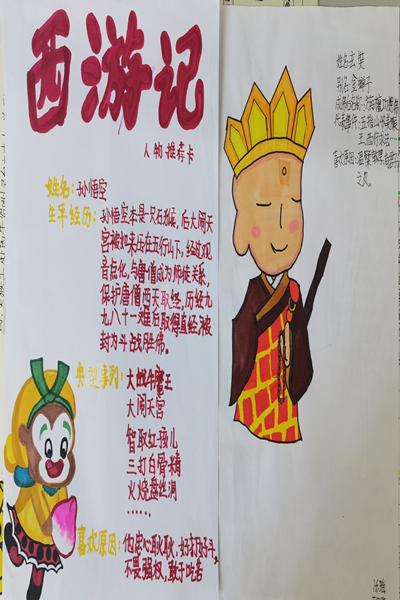 西游记
人物推荐卡
姓名：孙悟空
生平经历：孙悟空本是一只石猴，后大闹天
宫被如来压在五行山下，经过观
音点化，与唐僧成为师徒关系，
保护唐僧西天取经，历经九
九八十一难后取得真经被
封为斗战胜佛。
典型事列：大战牛魔王
大闹天宫
智取红孩儿
三打白骨精
火烧盘丝洞
……
喜欢原因：他忠心耿耿，好打好斗，
不畏强权，敢于吃苦
姓名：玄奘
别名：金蝉子